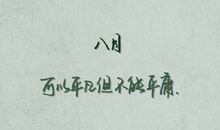 八月
可以平凡但不能平庸、